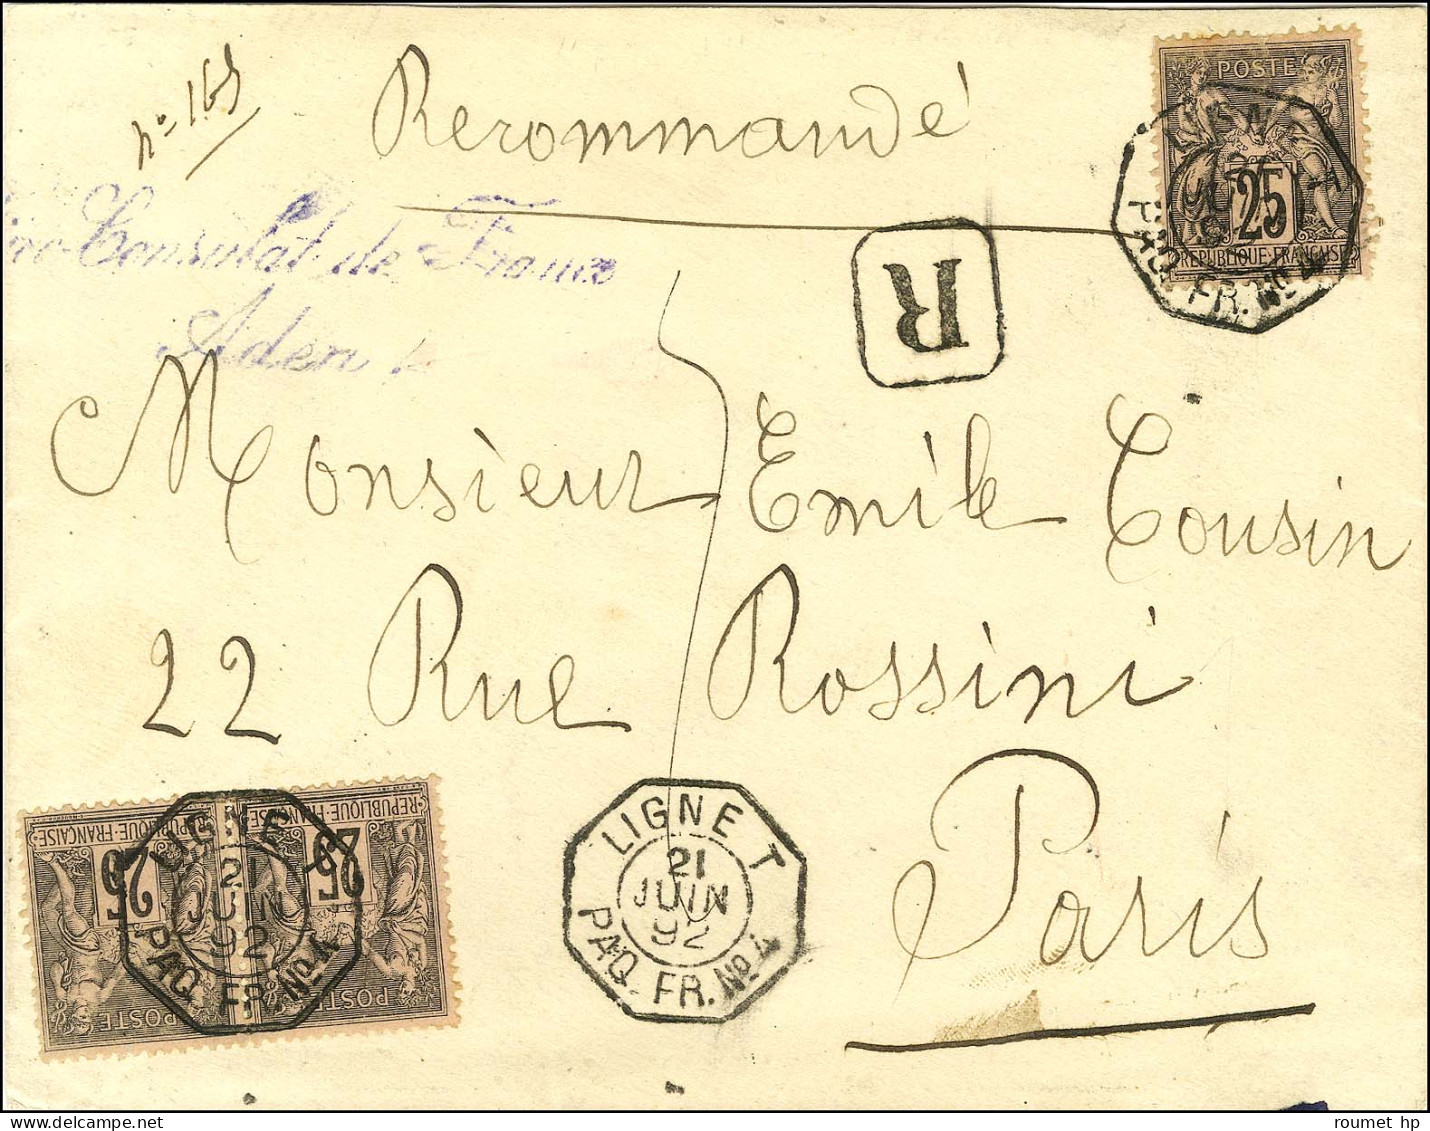 nº 165
Recommandé
Vice-Consulat de France
Aden
R
POSTE
25
REPUBLIQUE FRANÇAISE
LIGNE T
21
JUIN
92
PAQ. FR. Nº 4
Monsieur Emile Cousin
22 Rue Rossini
Paris
REPUBLIQUE FRANÇAISE
25
POSTE
REPUBLIQUE FRANÇAISE
25
POSTE
LIGNE T
21
JUIN
92
PAQ. FR. Nº 4
LIGNE T
21
JUIN
92
PAQ. FR. Nº 4
roumet hp